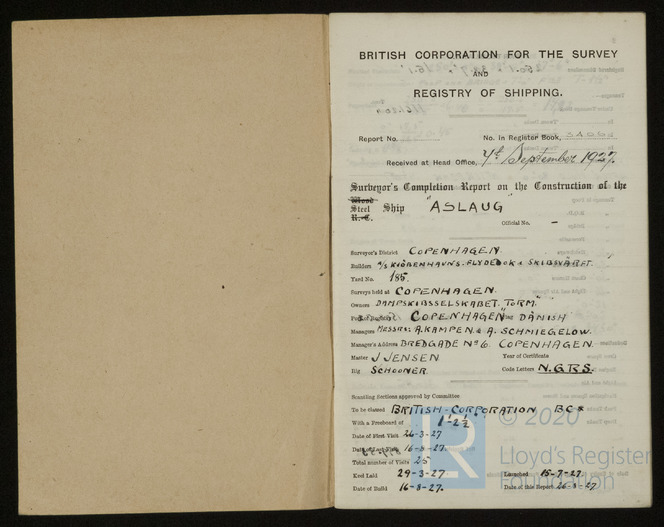 BRITISH CORPORATION FOR THE SURVEY
AND
REGISTRY OF SHIPPING.
Report No.
No. in Register Book,
Received at Head Office, 7th September 1927.
Surveyor's Completion Report on the Construction of the
Wood
Steel Ship "ASLAUG"
R.-C.
Official No. -
Surveyor's District COPENHAGEN.
Builders A/S KJØBENHAVNS. FLYDEDOK & SKIBSVÆRFT.
Yard No. 185.
Surveys held at COPENHAGEN.
Owners DAMPSKIBSSELSKABET. "TORM."
Port of Registry COPENHAGEN Flag DANISH
Managers MESSRS: A. KAMPEN & A. SCHMIEGELOW.
Manager's Address BREDGADE No 6. COPENHAGEN.
Master J JENSEN Year of Certificate
Rig SCHOONER. Code Letters N.G.R.S.
Scantling Sections approved by Committee
To be classed BRITISH-CORPORATION BC*
With a Freeboard of 1'-2½"
Date of First Visit 26-3-27
Date of Last Visit 16-8-27.
Total number of Visits 25
Keel Laid 29-3-27 Launched 15-7-27.
Date of Build 16-8-27. Date of this Report 26-8-27
© 2020
LR
Lloyd's Register
Foundation